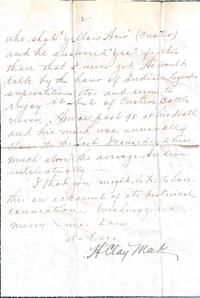 2
who shot "Yellow Hair" (Custer)
and he answered "yes" farther
than that I never got. He would
talk by the hour of Indian legends
superstitions etc and seem to
enjoy it but of Custer Battle
never. He was past 90 at his death
and his mind was unusually
to the last I considered him
much above the average Indian
intellectually
I thot you might like to have
this on account of its historical
connection. Wishing you a
Merry Xmas I am
H Clay Meek